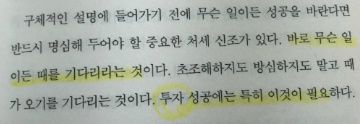 구체적인 설명에 들어가기 전에 무슨 일이든 성공을 바란다면
반드시 명심해 두어야 할 중요한 처세 신조가 있다. 바로 무슨 일
이든 때를 기다리라는 것이다. 초조해하지도 방심하지도 말고 때
가 오기를 기다리는 것이다. 투자 성공에는 특히 이것이 필요하다.